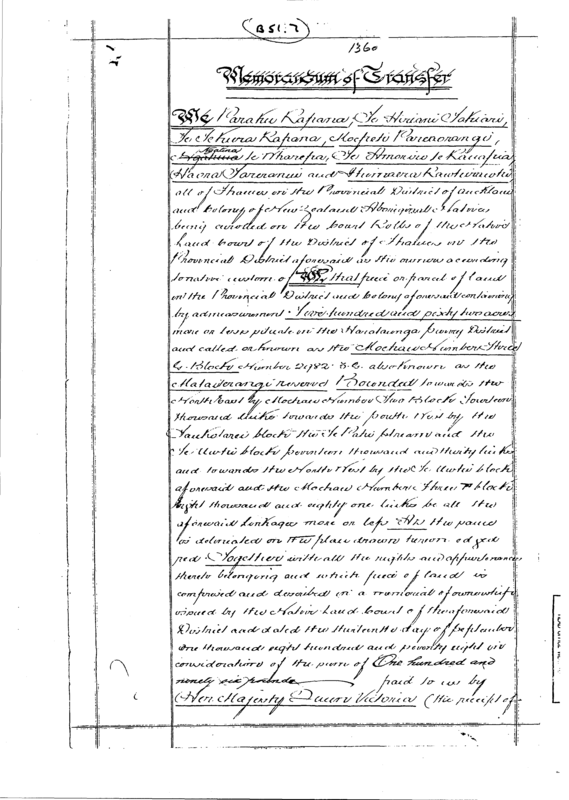 B 51.7
1360
Memorandum of Transfer
We Paraku Rapana, Te Hiriani Takiari,
Te Tekura Rapana, Hoepesi
Ngatina te Wharepa, Te Amoriri te
Haora Tareranui and
all of Thames in the Provincial District of Auckland
and Colony of New Zealand Aboriginal Natives
being enrolled on the Court Rolls of the Native
Land Court of the District of Thames in the
Provincial District aforesaid as the owners according
to native custom of All that piece or parcel of land
in the Provincial District and Colony aforesaid containing
by admeasurement Five hundred and sixty two acres
more or less situate in the Hautaunga Survey District
and called or known as the Moehau Number Three
G. Block Number 2982 B.C. also known as the
Mataiterangi reserve Bounded towards the
North East by Moehau Number Two Block fourteen
thousand links towards the South West by the
block the Te Paki stream and the
Te Umtii block seventeen thousand and thirty links
and towards the North West by the Te Umtii block
aforesaid and the Moehau Number Three block
eight thousand and eighty one links be all the
aforesaid linkages more or less As the same
is delineated on the plan drawn hereon edged
red Together with all the rights and appurtenances
thereto belonging and which piece of land is
comprised and described in a memorial of ownership
issued by the Native Land Court of the aforesaid
District and dated the thirteenth day of September
one thousand eight hundred and seventy eight in
consideration of the sum of One hundred and
ninety six pounds paid to us by
Her Majesty Queen Victoria (the receipt of